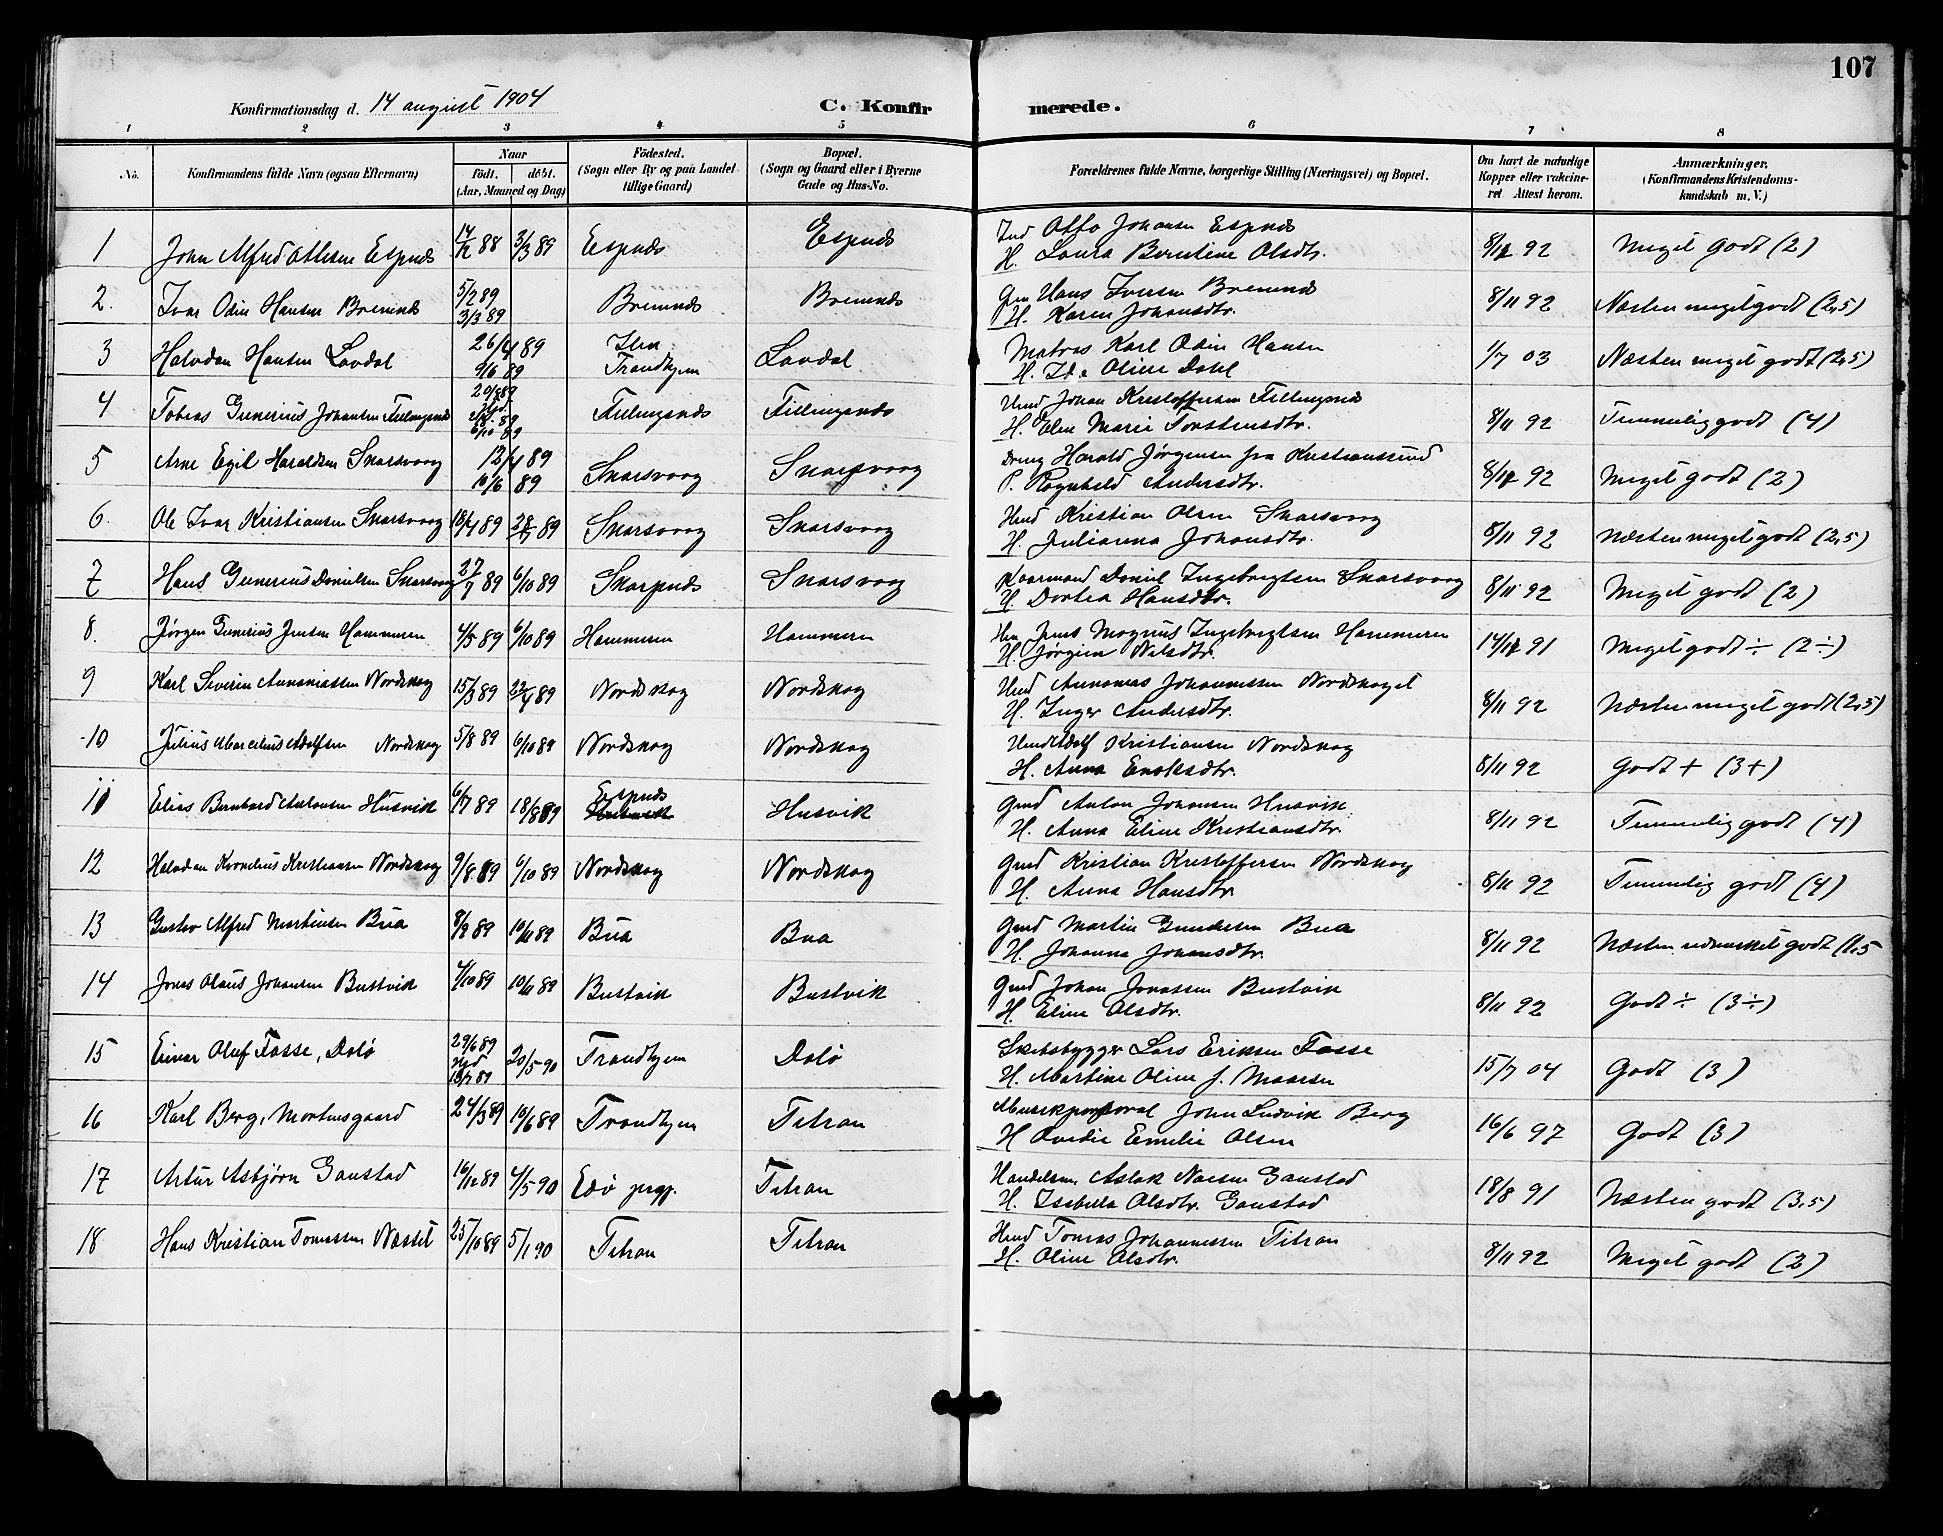 107
Konfirmationsdag d. 14 august 1904 C. Konfirmerede.
1 2 3 4 5 6 7 8
No. Konfirmandens fulde Navn (ogsaa Efternavn) Naar født. døbt. (Aar, Maaned og Dag) Födested. (Sogn eller By og paa Landet tillige Gaard) Bopæl. (Sogn og Gaard eller i Byerne Gade og Hus-No.) Forældrenes fulde Navne, borgerlige Stilling (Næringsvei) og Bopæl. Om havt de naturlige Kopper eller vakcineret Attest herom. Anmærkninger. (Konfirmandens Kristendomskundskab m. V.)
1 John Alfred Ottesen Espnes 14/12 88 3/3 89 Espnes Espnes Ind Otto Johansen Espnes 8/11 92 Meget godt (2)
H. Laura Berntine Olsdtr.
2. Ivar Odin Hansen Bremnes 5/2 89 3/3 89 Bremnes Bremnes Gm Hans Iversen Bremnes 8/11 92 Næsten meget godt (2,5)
H. Karen Johansdtr.
3 Halvdan Hansen Lovdal 26/4 89 9/6 89 Ilen Trondhjem Lovdal Matros Karl Odin Hansen 1/7 03 Næsten meget godt (2,5)
H. Ida Oline Dahl
4 Tobias Gunerius Johansen Fillingsnes 6/10 89 Fillingsnes Fillingsnes Hmd Johan Kristoffersen Fillingsnes 8/11 92 Temmelig godt (4)
H. Elen Marie Torstensdtr.
5 Arne Egil Haraldsen Snarsvaag 12/4 89 10/6 89 Snarsvaag Snarsvaag Dreng Harald Jørgensen fra Kristianssund 8/11 92 Meget godt (2)
P. Ragnhild Andersdtr.
6. Ole Ivar Kristiansen Snarsvaag 18/4 89 28/7 89 Snarsvaag Snarsvaag Hmd Kristian Olsen Snarsvaag 8/11 92 Næsten meget godt (2,5)
H. Julianna Johansdtr.
7 Hans Gunerius Danielsen Snarsvaag 27/7 89 6/10 89 Skarpnes Snarsvaag Kaarmand Daniel Ingebrigtsen Snarsvaag 8/11 92 Meget godt (2)
H. Dortea Hansdtr.
8. Jørgen Gunerius Jensen Hammeren 4/5 89 6/10 89 Hammeren Hammeren Hm Jens Magnus Ingebrigtsen Hammeren 14/11 91 Meget godt ÷ (2÷)
H. Jørgine Nilsdtr.
9 Karl Severin Annaniassen Nordskag 15/3 89 22/4 89 Nordskag Nordskag Hmd Annanias Johannessen Nordskaget 8/11 92 Næsten meget godt (2,5)
H. Inger Andersdtr.
10 Julius Marcelius Adolfsen Nordskag 5/8 89 6/10 89 Nordskag Nordskag Hmd Adolf Kristiansen Nordskag 8/11 92 Godt + (3+)
H. Anna Enoksdtr.
11 Elias Bernhard Antonsen Husvik 6/7 89 18/8 89 Espnes Husvik Gmd Anton Johansen Husvik 8/11 92 Temmelig godt (4)
H. Anna Eline Kristiansdtr.
12 Halvdan Kornelius Kristiansen Nordskag 9/8 89 6/10 89 Nordskag Nordskag Gmd Kristian Kristoffersen Nordskag 8/11 92 Temmelig godt (4)
H. Anna Hansdtr.
13 Gustav Alfred Martinsen Bua 8/9 89 10/11 89 Bua Bua Gmd Martin Gundersen Bua 8/11 92 Næsten udmerket godt (1,5
H. Johanna Johansdtr.
14 Jonas Olaus Johansen Bustvik 4/10 89 10/11 89 Bustvik Bustvik Gmd Johan Jonassen Bustvik 8/11 92 Godt ÷ (3÷)
H. Eline Olsdtr.
15 Einar Oluf Fosse, Dolø 29/6 89 20/5 90 Trondhjem Dolø Skibsbygger Lars Eriksen Fosse 15/7 04 Godt (3)
H. Martine Oline f. Moursen
16 Karl Berg, Mortensgaard 24/3 89 10/6 89 Trondhjem Titran Musikkorporal John Ludvik Berg 16/6 97 Godt (3)
H. Ovedie Emilie Olsen
17 Artur Asbjørn Ganstad 16/12 89 4/5 90 Edø prgj. Titran Handelsm. Aslak Naesen Ganstad 18/8 91 Næsten godt (3,5)
H. Isabella Olsdtr. Ganstad
18 Hans Kristian Tomassen Næsset 25/10 89 5/1 90 Titran Titran Hmd Tomas Johannessen Titran 8/11 92 Meget godt (2)
H. Oline Olsdtr.